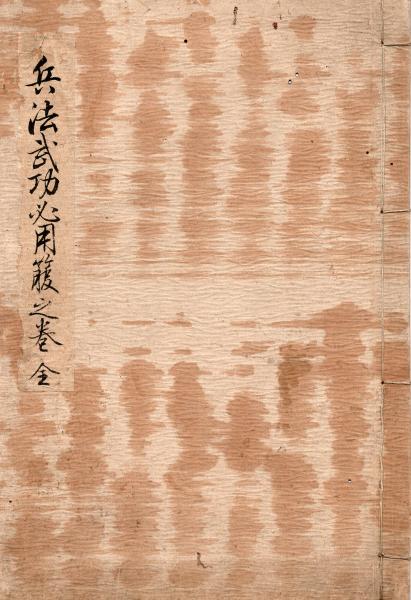 兵法武功必用簸之巻 全